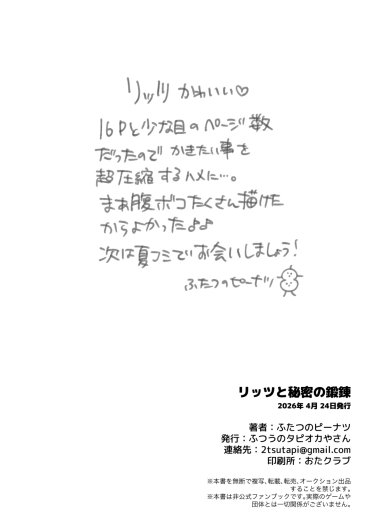 リッツ かわいい♡
16Pと少な目のページ数
だったので かきたい事を
超圧縮するハメに…。
まあ腹ボコたくさん描けた
からよかった♪♪
次は夏コミでお会いしましょう!
ふたつのピーナツ
リッツと秘密の鍛錬
2026年 4月 24日発行
著者:ふたつのピーナツ
発行:ふつうのタピオカやさん
連絡先:2tsutapi@gmail.com
印刷所:おたクラブ
※本書を無断で複写、転載、転売、オークション出品
することを禁じます。
※本書は非公式ファンブックです。実際のゲームや
団体とは一切関係がございません。